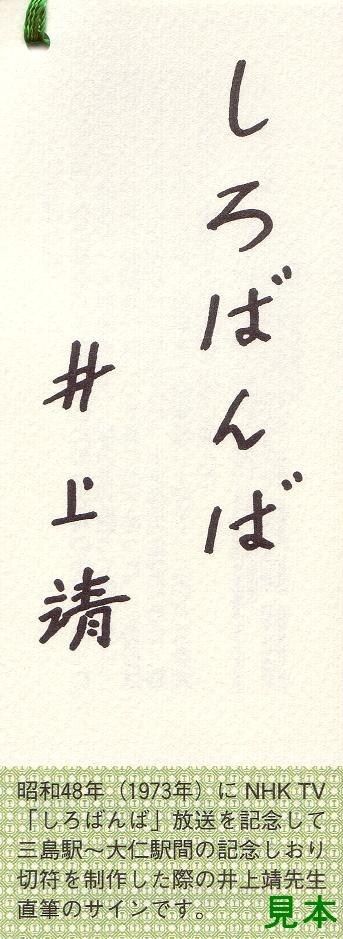 しろばんば
井上靖
昭和48年（1973年）に NHK TV
「しろばんば」放送を記念して
三島駅～大仁駅間の記念しおり
切符を制作した際の井上靖先生
直筆のサインです。
見本